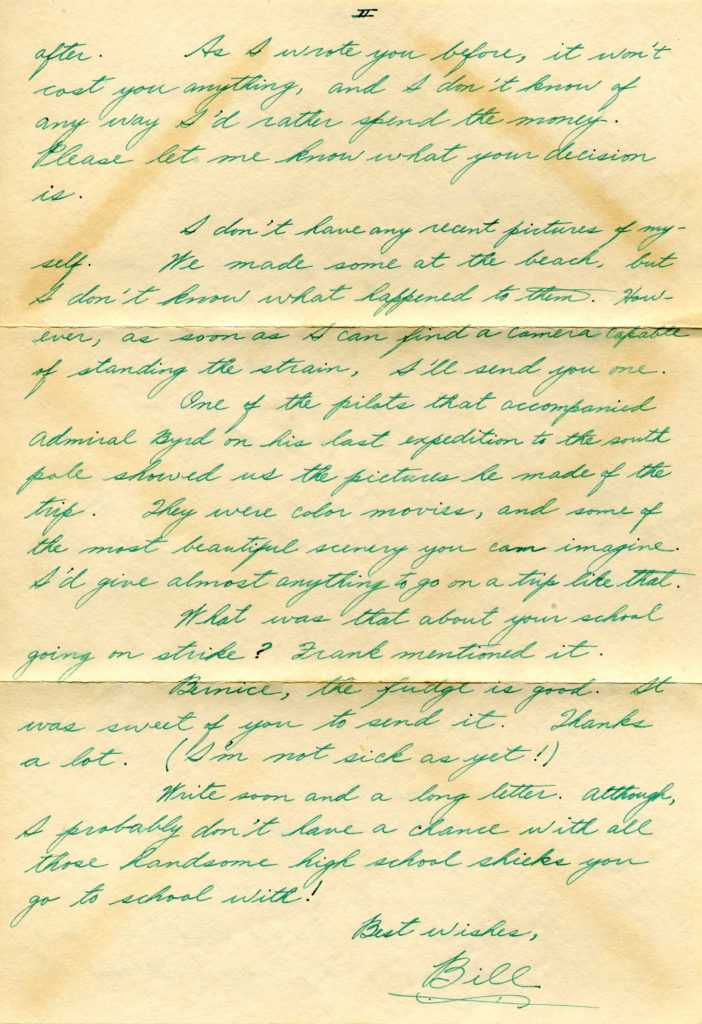 II
after. As I wrote you before, it won't
cost you anything, and I don't know of
any way I'd rather spend the money.
Please let me know what your decision
is.
I don't have any recent pictures of my-
self. We made some at the beach, but
I don't know what happened to them. How-
ever, as soon as I can find a camera capable
of standing the strain, I'll send you one.
One of the pilots that accompanied
Admiral Byrd on his last expedition to the south
pole showed us the pictures he made of the
trip. They were color movies, and some of
the most beautiful scenery you can imagine.
I'd give almost anything to go on a trip like that.
What was that about your school
going on strike? Frank mentioned it.
Bernice, the fudge is good. It
was sweet of you to send it. Thanks
a lot. (I'm not sick as yet!)
Write soon and a long letter. Although,
I probably don't have a chance with all
those handsome high school shieks you
go to school with!
Best wishes,
Bill